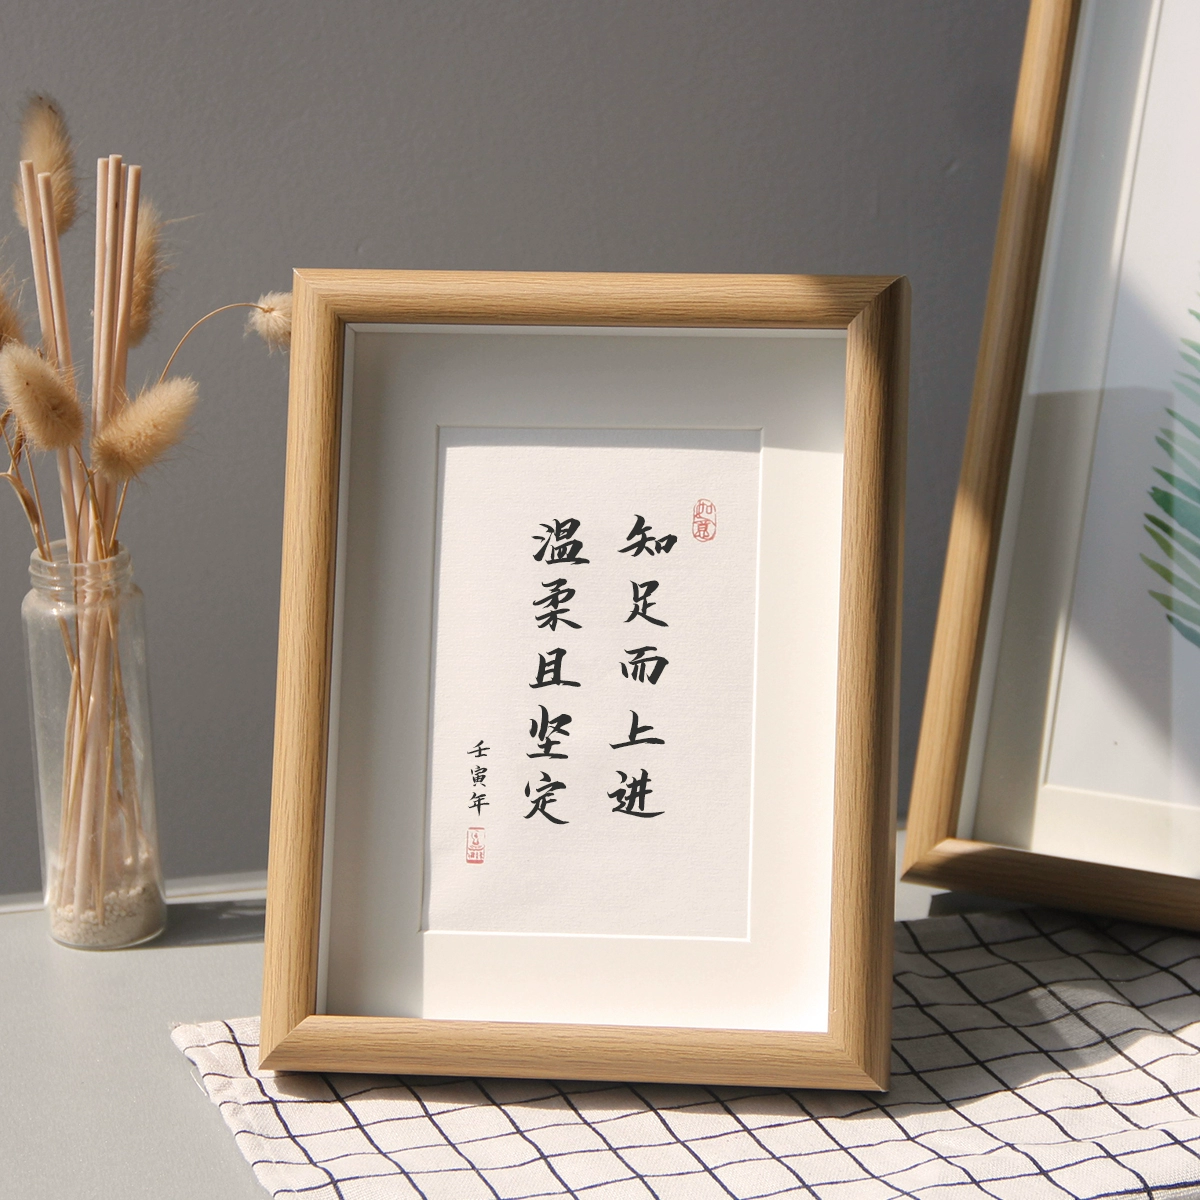 如意
知足而上进
温柔且坚定
壬寅年